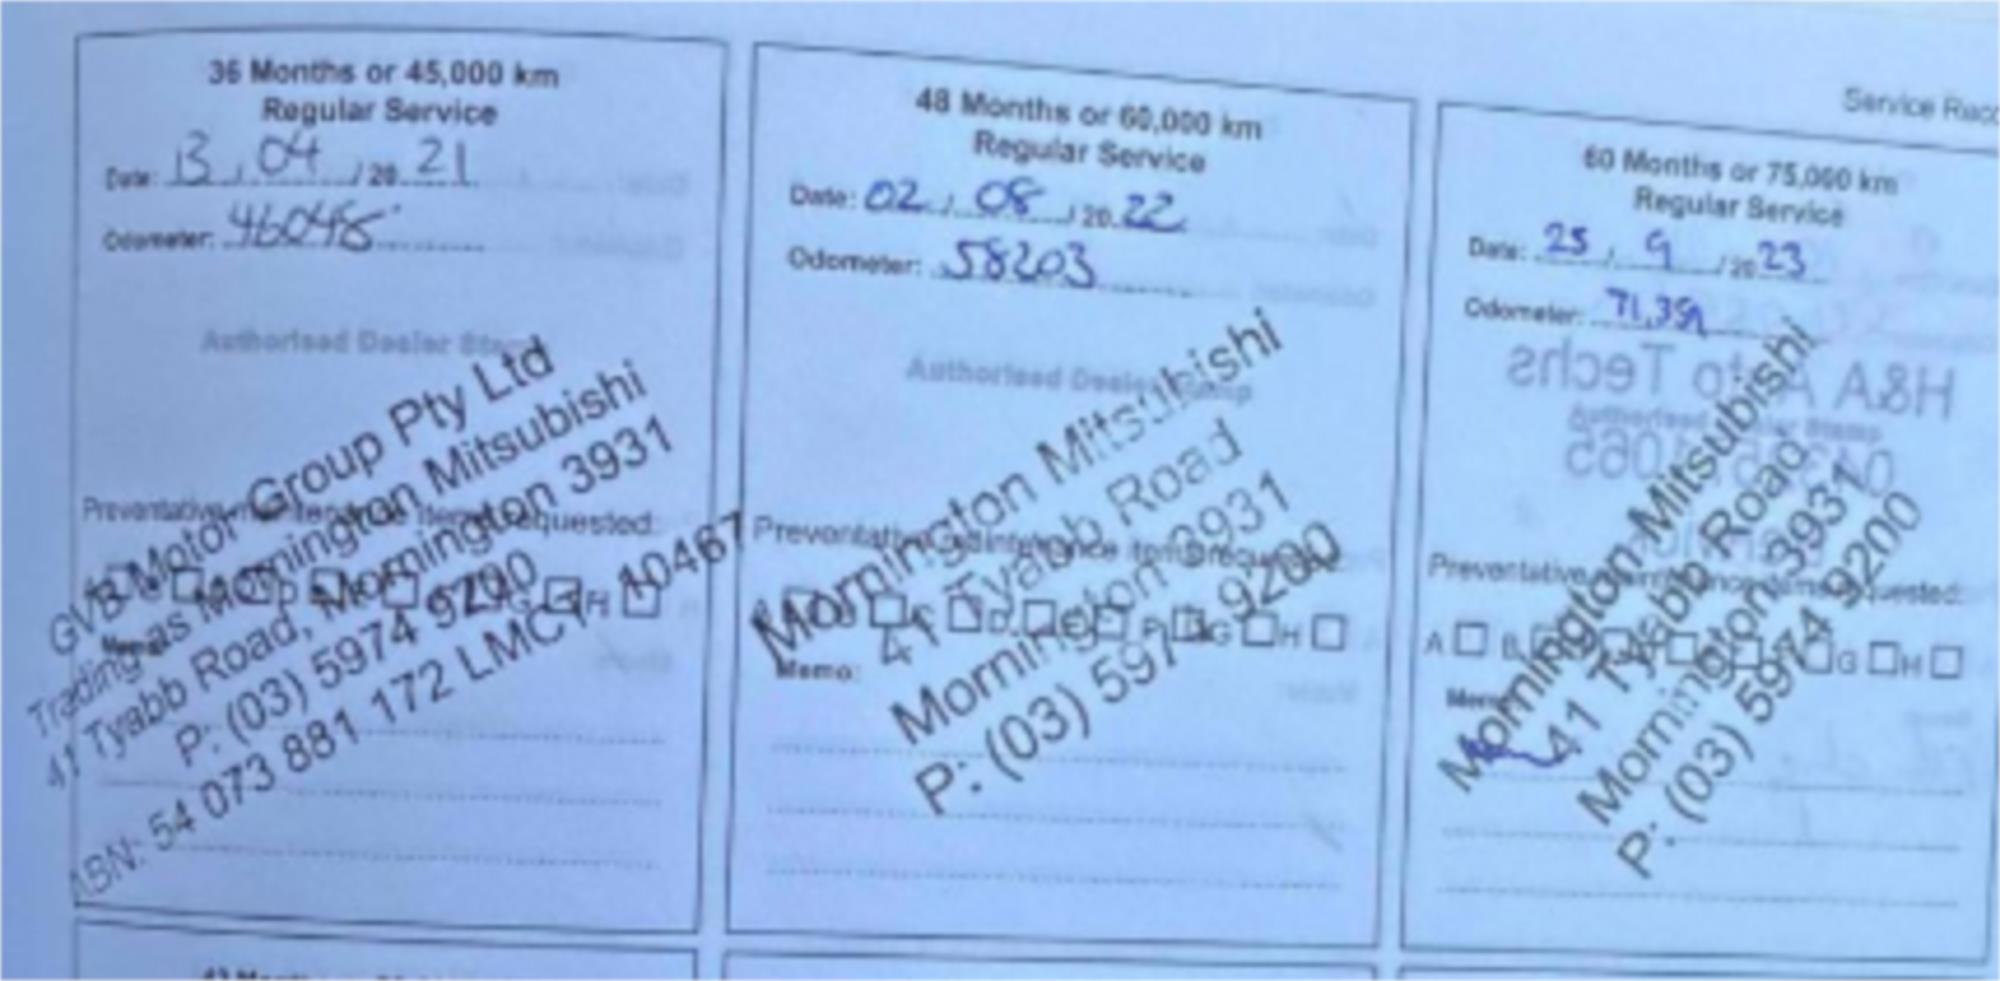 Service
36 Months or 45,000 km
Regular Service
Date: 13 , 04 / 20 21
Odometer: 46048
Authorised Dealer
GVB Motor Group Pty Ltd
Trading as Mornington Mitsubishi
41 Tyabb Road, Mornington 3931
P: (03) 5974 9200
ABN: 54 073 881 172 LMCT 10467
Preventative maintenance items requested:
H
48 Months or 60,000 km
Regular Service
Date: 02 / 08 / 20 22
Odometer: 58203
Authorised Dealer Stamp
Mornington Mitsubishi
41 Tyabb Road
Mornington 3931
P: (03) 5974 9200
Preventative maintenance items requested:
C D E F G H
Memo:
60 Months or 75,000 km
Regular Service
Date: 25 / 9 / 20 23
Odometer: 71,359
H&A Auto Techs
Authorised Dealer Stamp
Mornington Mitsubishi
41 Tyabb Road
Mornington 3931
P: (03) 5974 9200
Preventative maintenance items requested:
A B G H
Memo